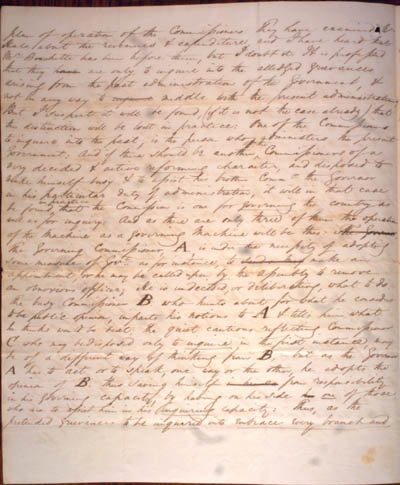 plan of operation of the Commissioners. They have examined Mr
about the revenues & expenditure and I have heard that
Mr Bouchette has been before them, but I doubt it. It is professed
that they are only to inquire into the alledged Grievances
arising from the past administration of the Governors, &
not in any way to meddle with the present administration
But I suspect it will be found, (if it is not the case already) that
the distinction will be lost in practice. One of the Commissioners
to inquire into the past, is the person who administers the present
Government. And if there should be another Commissioner of a
very decided & active reforming character and disposed to
make himself busy & to assist his brother Commr the Governor
in his particular duty of administration, it will in that case
be found that the Commission is one for governing the country as
well as for inquiry. And as there are only three of them the operation
of the Machine as a governing Machine will be this.
the Governing Commissioner A is under the necessity of adopting
some measure of Govt as for instance, to make an
appointment or he may be called upon by the assembly to remove
an obnoxious officer; He is undecided or deliberating, what to do
the busy Commissioner B who hunts about for what he considers
to be public opinion imparts his notions to A & tells him what
he thinks would be best. the quiet cautious reflecting Commissioner
C who may be disposed only to inquire in the first instance may
be of a different way of thinking from B but as the Governor
A has to act or to speak, one way or the other, he adopts the
opinion of B thus saving himself from responsibility
in his governing capacity by having on his side one of those
who are to assist him in his inquiring capacity: thus, as the
pretended Grievances to be inquired into embrace every branch and